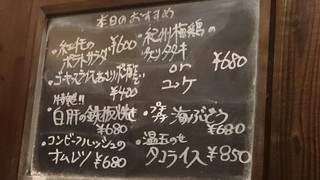 本日のおすすめ
・紅芋の
ポテトサラダ ¥600
・ゴーヤースライス
¥420
・白肝の鉄板焼き
¥680
・コンビーフハッシュの
オムレツ ¥680
・紀州梅鶏の
タタキ
or
ユッケ
¥680
・プチプチ海ぶどう
¥680
・温玉のせ
タコライス ¥850